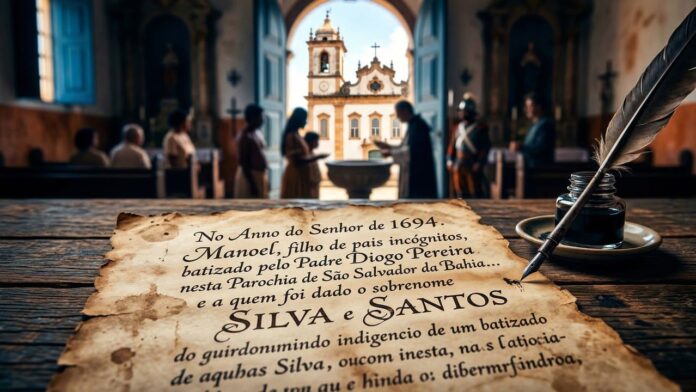 No Anno do Senhor de 1694.
Manoel, filho de pais incógnitos,
batizado pelo Padre Diogo Pereira
nesta Parochia de São Salvador da Bahia...
e a quem foi dado o sobrenome
SILVA e SANTOS
do guirdonumindo indigencio de um batizado
de aquhas Silva, oucom inesta, na s